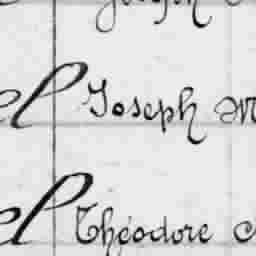 el Joseph M
el Théodore